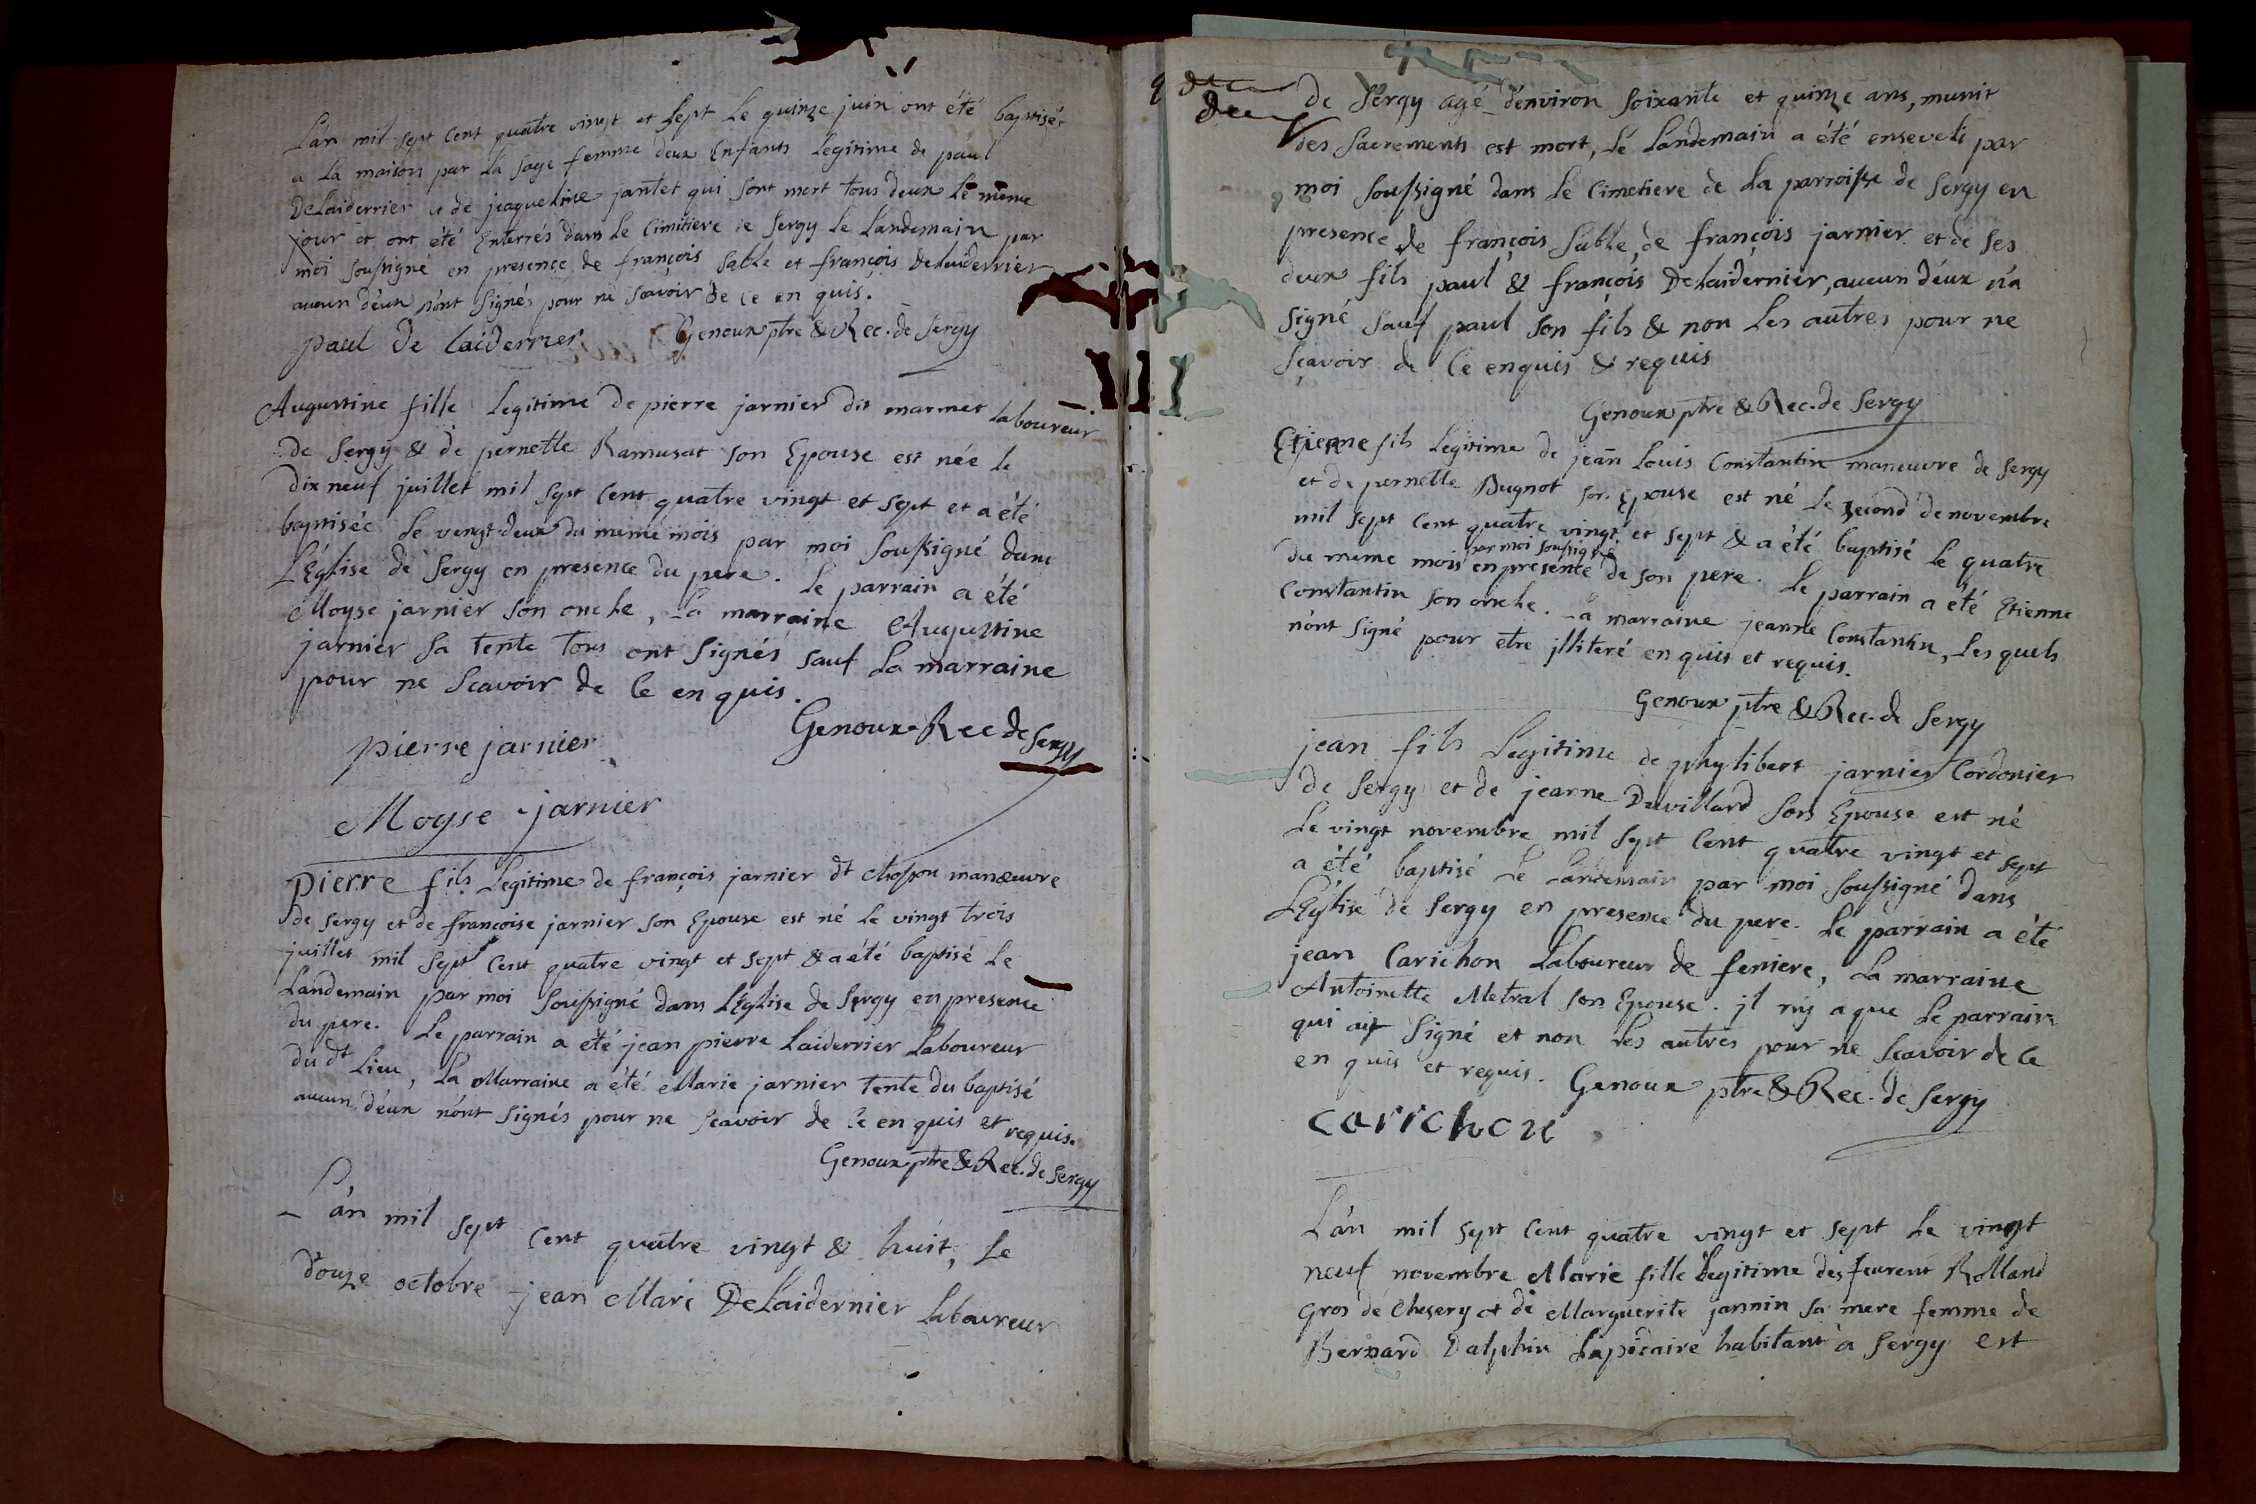 L'an mil sept cent quatre vingt et sept le quinze juin ont été baptisés
a la maison par la sage femme deux Enfants legitime de paul
DeLaiderrier et de jeaqueline jantet qui sont mort tous deux le même
jour et ont été Enterrés dans le Cimitiere de Sergy le Landemain par
moi soussigné en presence de françois Sablé et françois Delaiderrier
aucun d'eux n'ont signés pour ne scavoir de ce en quis.
paul De laiderrier Genoux ptre & Rec. de Sergy
Augustine fille Legitime de pierre jarnier dit marmet Laboureur
de Sergy & de pernette Ramusat son Epouse est née le
dix neuf juillet mil sept cent quatre vingt et sept et a été
baptisée le vingt-deux du meme mois par moi soussigné dans
L'Église de Sergy en presence du pere. Le parrain a été
Moyse jarnier son oncle, La marraine Augustine
jarnier sa tente tous ont signés sauf La marraine
pour ne scavoir de ce en quis.
Genoux Rec de Sergy
pierre jarnier
Moyse jarnier
pierre fils Legitime de françois jarnier dt chapon manœuvre
de Sergy et de françoise jarnier son Epouse est né le vingt trois
juillet mil sept cent quatre vingt et sept & a été baptisé le
Landemain par moi soussigné dans L'Eglise de Sergy en presence
du pere. Le parrain a été jean pierre Laiderrier Laboureur
du dt Lieu, La Marraine a été Marie jarnier tente du baptisé
aucun d'eux n'ont signés pour ne scavoir de ce en quis et requis.
Genoux ptre & Rec. de Sergy
L'an mil sept cent quatre vingt & huit, le
douze octobre jean Mari DeLaidernier Laboureur
de Sergy agé d'environ soixante et quinze ans, munit
des Sacrements est mort, le Landemain a été enseveli par
moi soussigné dans le Cimetiere de La parroisse de Sergy en
presence de françois Sablé, de françois jarnier et de ses
deux fils paul & françois DeLaidernier, aucun d'eux n'a
signé sauf paul son fils & non les autres pour ne
sçavoir de ce enquis & requis
Genoux ptre & Rec. de Sergy
Etienne fils Legitime de jean Louis Constantin manœuvre de Sergy
et de pernette Bugnot son Epouse est né Le second de novembre
mil sept cent quatre vingt et sept & a été baptisé le quatre
par moi soussigné
du meme mois en presence de son pere. Le parrain a été Etienne
Constantin son oncle. La marraine jeanne Constantin, Les quels
n'ont signé pour etre jlliteré en quis et requis.
Genoux ptre & Rec. de Sergy
jean fils Legitime de phylibert jarnier Cordonier
de Sergy et de jeanne Duvillard son Epouse est né
le vingt novembre mil sept cent quatre vingt et sept
a été baptisé le Landemain par moi soussigné dans
L'Eglise de Sergy en presence du pere. Le parrain a été
jean Carichon Laboureur de feniere, La marraine
Antoinette Metral son Epouse. jl n'y a que le parrain
qui ait signé et non les autres pour ne scavoir de ce
en quis et requis. Genoux ptre & Rec. de Sergy
carichon
L'an mil sept cent quatre vingt et sept le vingt
neuf novembre Marie fille Legitime des Rolland
Gros de Chesery et de Marguerite jannin sa mere femme de
Bernard Dalphin Lapidaire habitant a Sergy est